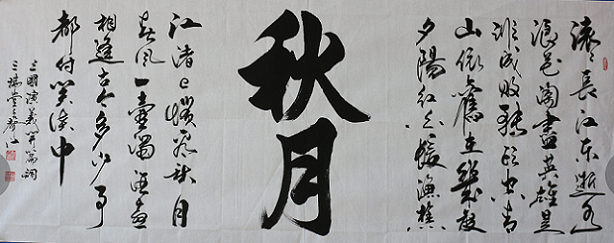 滚滚長江东逝水
浪花淘盡英雄是
非成败转头空青
山依舊在幾度
夕陽红白髮漁樵
秋月
江渚上惯看秋月
春风一壶濁酒喜
相逢古今多少事
都付笑谈中
三国演义开篇词